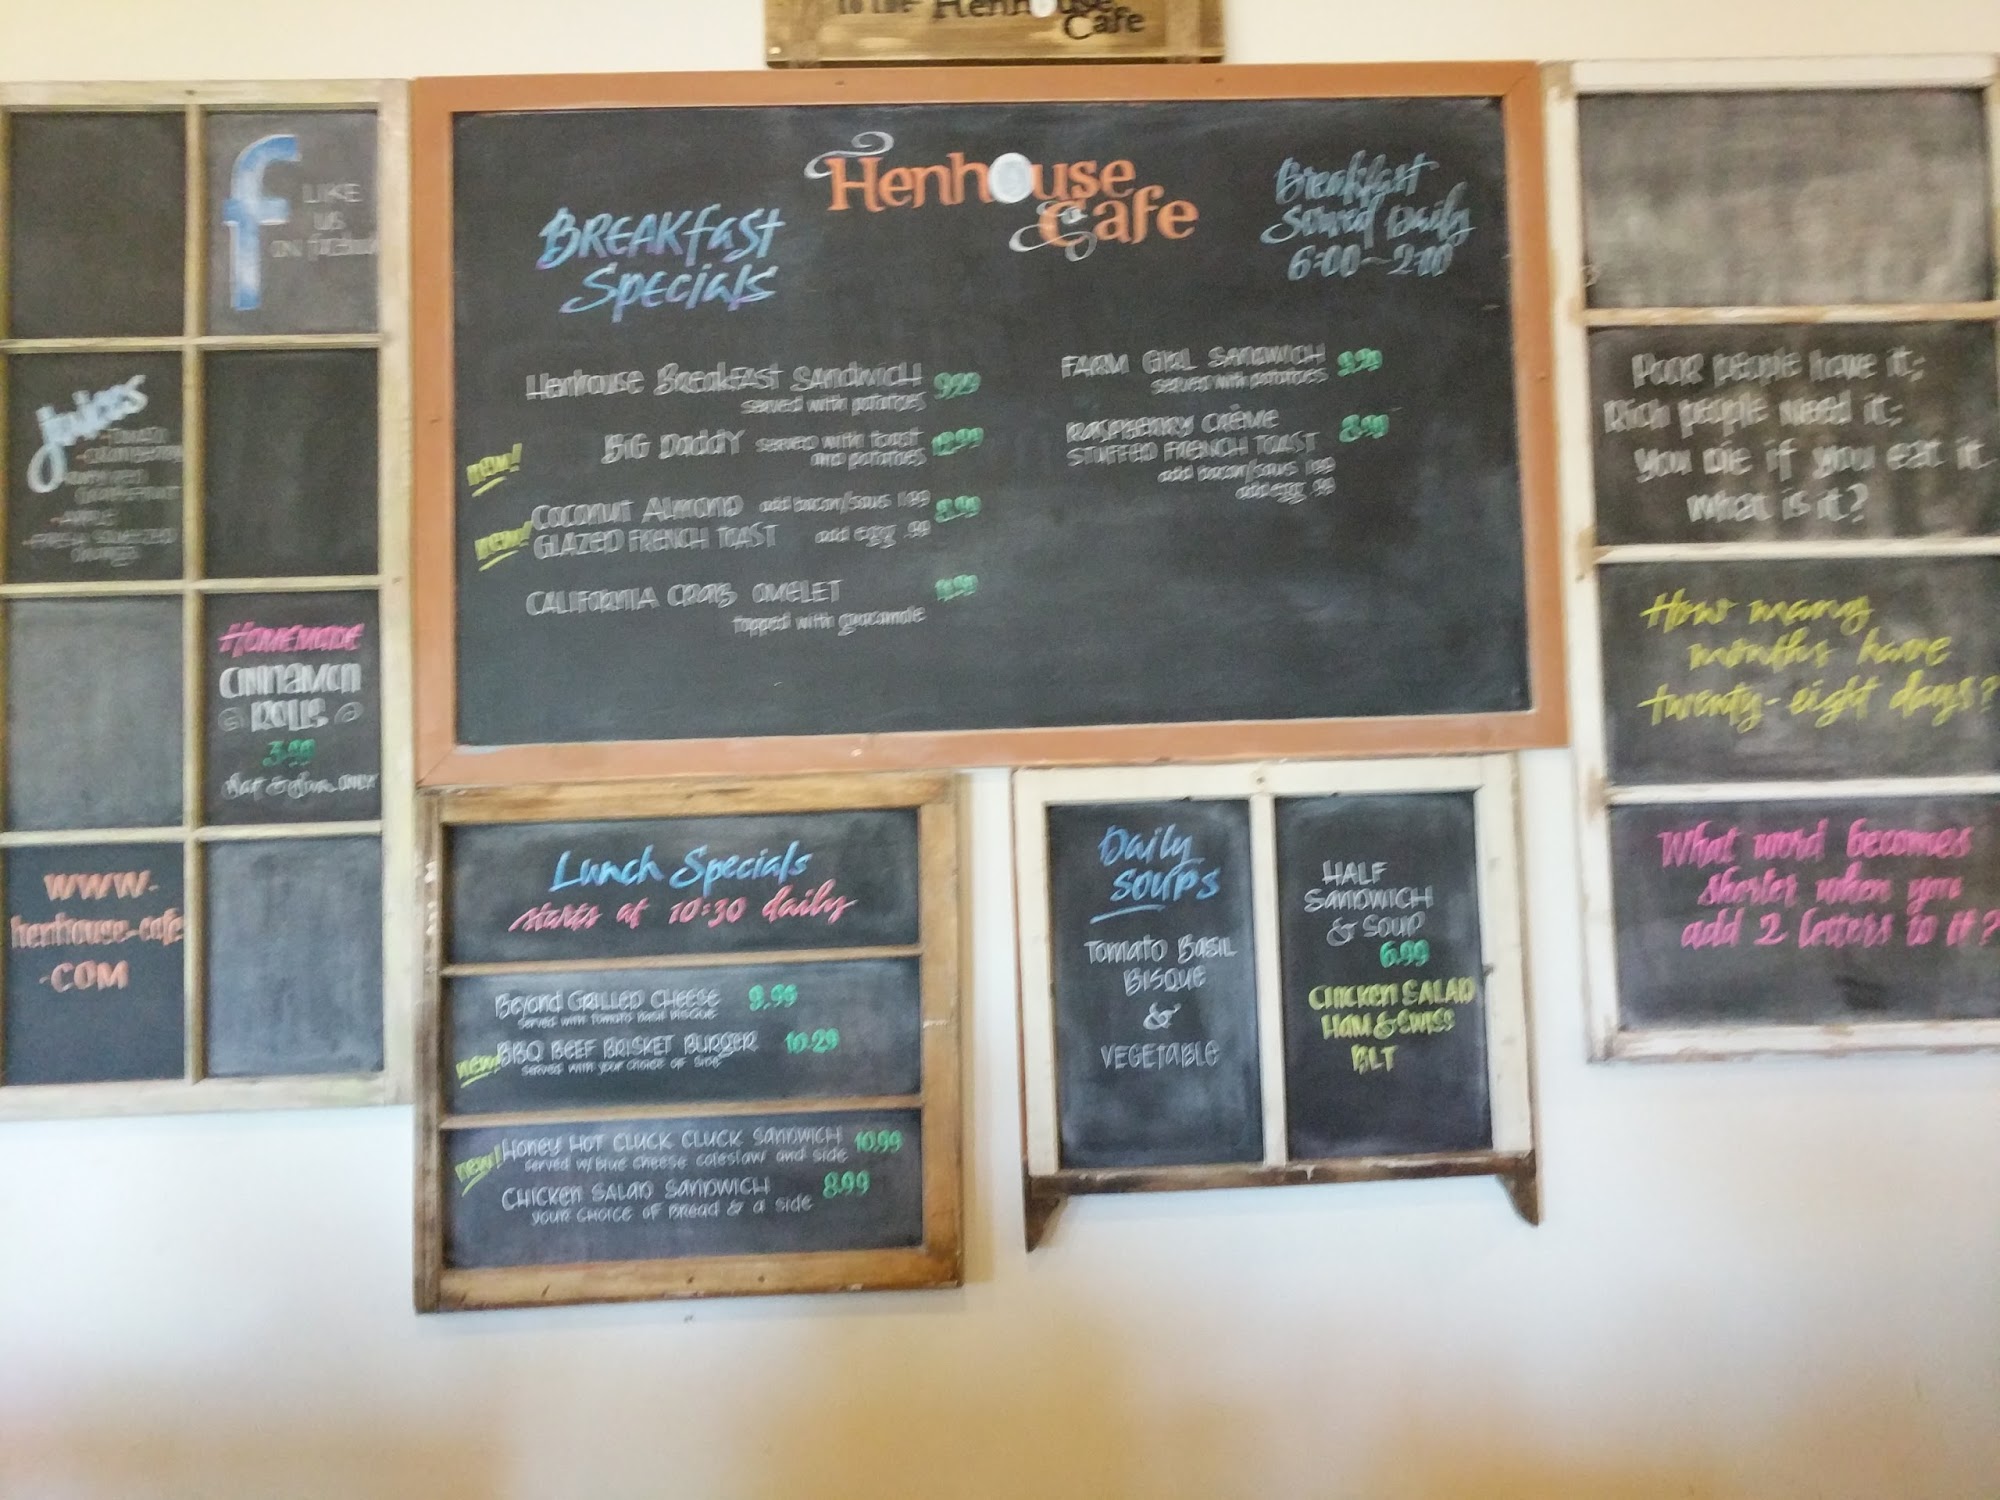 to the Henhouse
Cafe
f LIKE
US
ON
juices
- TOMATO
- CRANBERRY
- APPLE
- FRESH SQUEEZED
ORANGE
HOMEMADE
CINNAMON
ROLLS
3.99
Sat & Sun ONLY
WWW.
henhouse-cafe
.COM
Henhouse
Cafe
BREAKfast
Specials
Breakfast
Served Daily
6:00-2:00
Henhouse BreakFAST SANDWICH
served with potatoes
new!
BIG DaddY served with toast
and potatoes
12.99
new!
Coconut ALMOND add bacon/saus 1.99
GLAZED FRENCH TOAST add egg .99
CALIFORNIA CRAB OMELET
topped with guacamole
FARM GIRL SANDWICH
served with potatoes
RASPBERRY CRÈME
STUFFED FRENCH TOAST
8.99
add bacon/saus 1.99
add egg .99
Lunch Specials
starts at 10:30 daily
Beyond GRILLED CHEESE 9.99
served with tomato basil bisque
new! BBQ BEEF BRISKET BURGER 10.29
served with your choice of side
new! Honey HOT CLUCK CLUCK SANDWICH 10.99
served w/blue cheese coleslaw and side
CHICKEN SALAD SANDWICH 8.99
YOUR CHOICE OF BREAD & a side
Daily
SOUPS
TOMATO BASIL
BISQUE
&
VEGETABLE
HALF
SANDWICH
& SOUP
6.99
CHICKEN SALAD
HAM & SWISS
BLT
Poor people have it;
Rich people need it;
you die if you eat it.
What is it?
How many
months have
twenty-eight days?
What word becomes
shorter when you
add 2 letters to it?